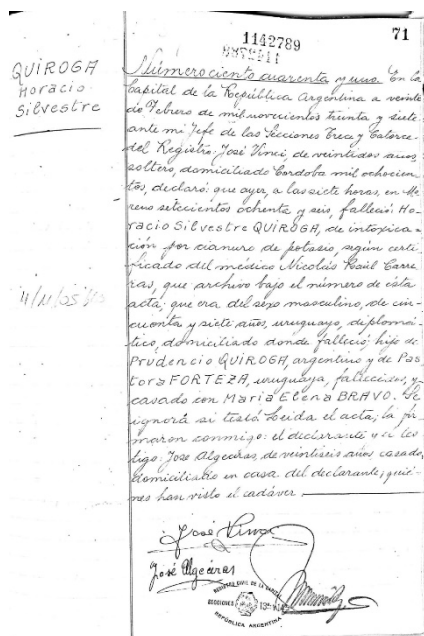 71
1142789
QUIROGA
Horacio
Silvestre
Número ciento cuarenta y uno. En la
Capital de la República Argentina a veinte
de Febrero de mil novecientos treinta y siete
ante mi Jefe de las Secciones Trece y Catorce
del Registro: José Vinci, de veintidos años,
soltero, domiciliado Cordoba mil ochocien-
tos, declaró: que ayer, a las siete horas, en Mé-
setecientos ochenta y seis, falleció: Ho-
racio Silvestre QUIROGA, de intoxica-
ción por cianuro de potasio, según certi-
ficado del médico Nicolás Raúl Carre-
ras, que archivo bajo el número de esta
acta; que era del sexo masculino, de cin-
cuenta y siete años, uruguayo, diplomá-
tico, domiciliado donde falleció; hijo de
Prudencio QUIROGA, argentino y de Pas-
tora FORTEZA, uruguaya, fallecidos, y
casado con Maria Elena BRAVO. Se
ignora si testó. Leida el acta, la fir-
maron conmigo: el declarante y el tes-
tigo: Jose Algeciras, de veintiseis años, casado,
domiciliado en casa del declarante; quie-
nes han visto el cadáver.
José Vinci
José Algeciras
REGISTRO CIVIL DE LA
SECCIONES 13ª Y 14ª
REPÚBLICA ARGENTINA